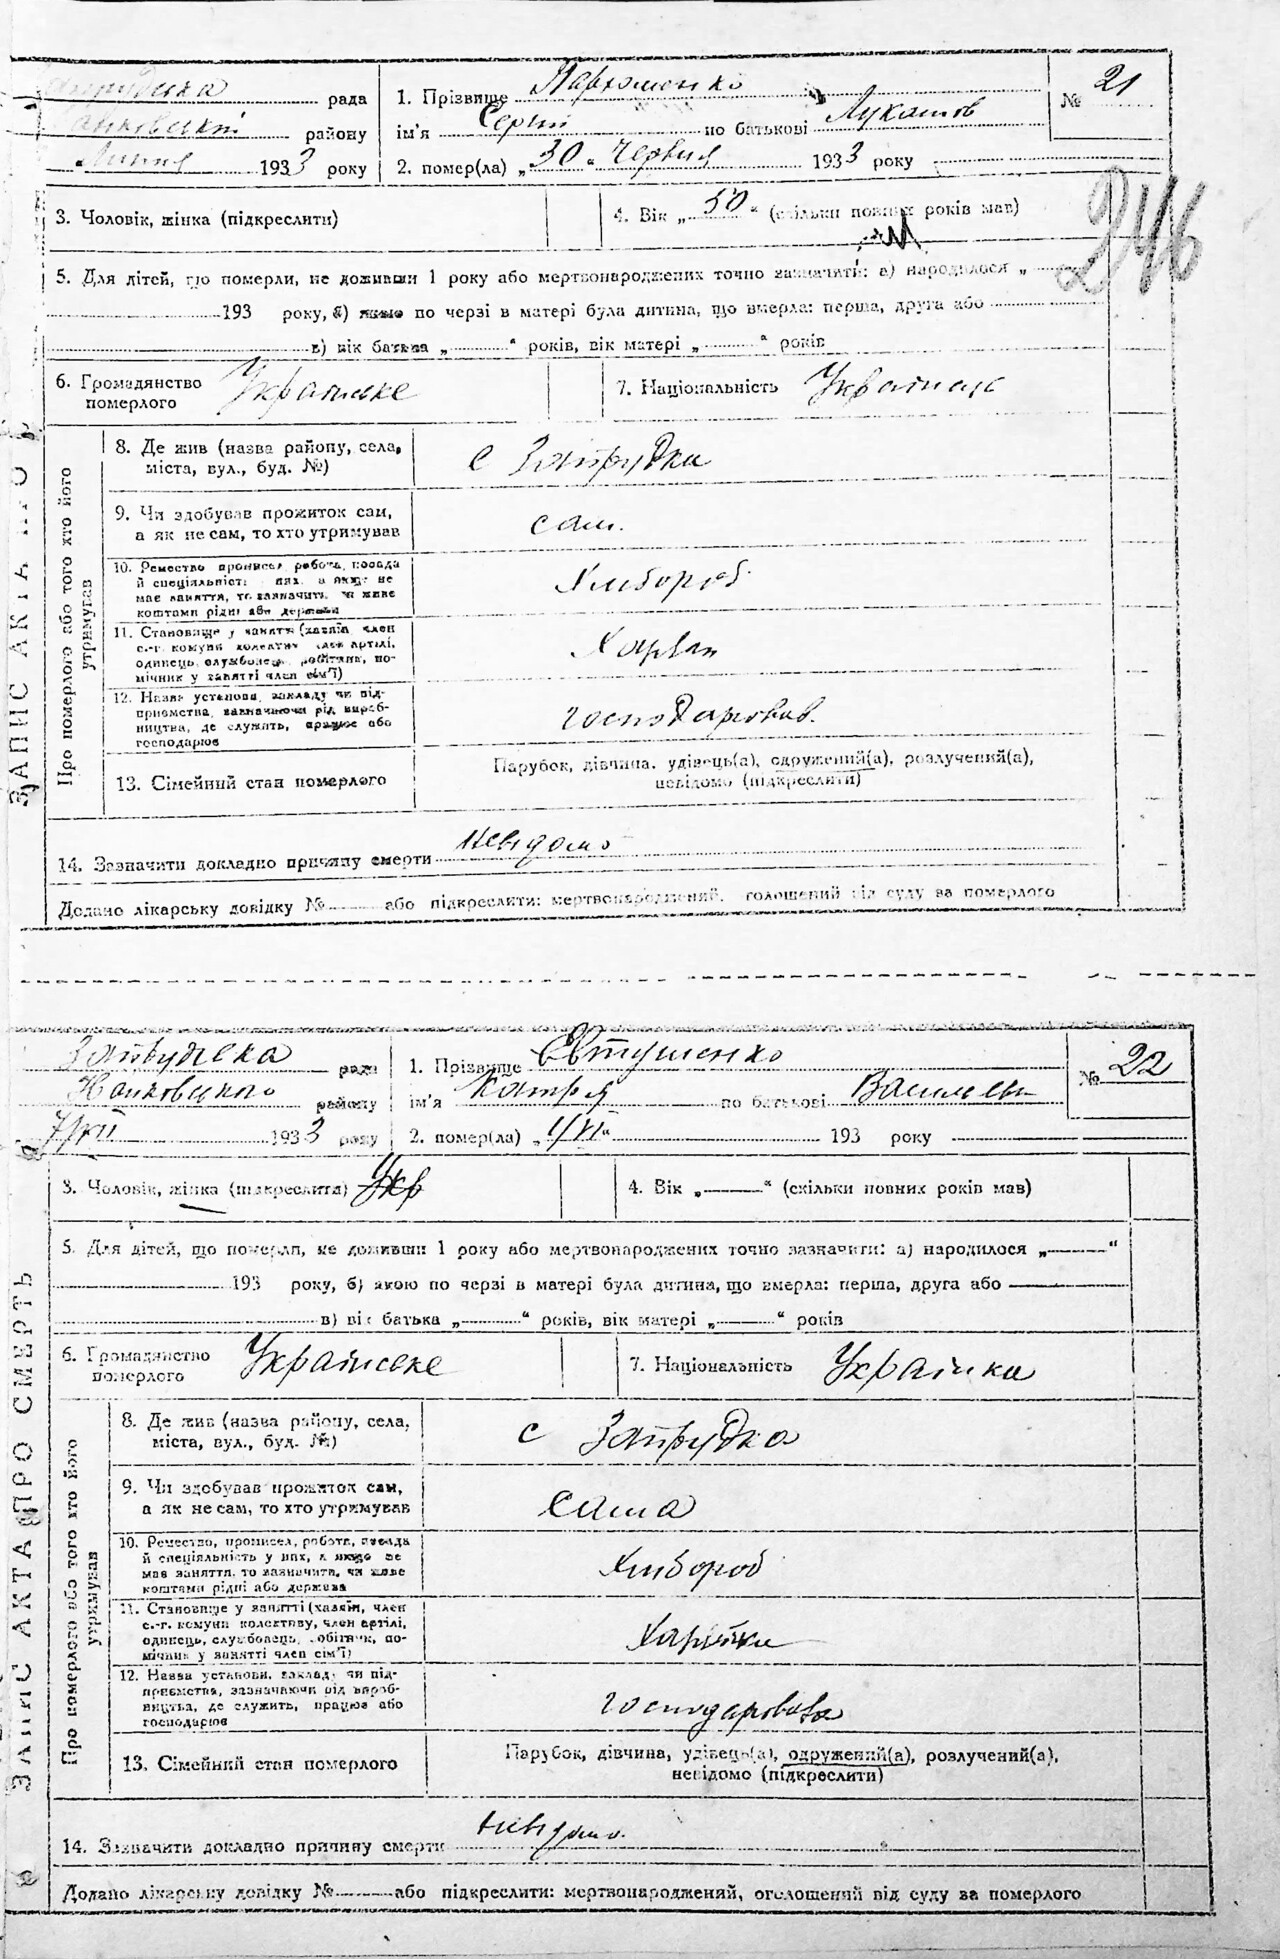 рада
району
Липня 1933 року
1. Прізвище Пархоменко
ім'я Сергій по батькові Лукашов
2. помер(ла) „ 30 “ Червня 1933 року
№ 21
246
3. Чоловік, жінка (підкреслити)
4. Вік „ 50 “ (скільки повних років мав)
5. Для дітей, що померли, не доживши 1 року або мертвонароджених точно зазначить: а) народилося „
193 року, б) якою по черзі в матері була дитина, що вмерла: перша, друга або
в) вік батька „ “ років, вік матері „ “ років
6. Громадянство померлого Українське
7. Національність Українець
ЗАПИС АКТА ПРО
Про померлого або того хто його утримував
8. Де жив (назва району, села, міста, вул., буд. №)
с Запрудка
9. Чи здобував прожиток сам, а як не сам, то хто утримував
сам.
10. Ремество, промисел, робота, посада й спеціальність у них, а якщо не має заняття, то зазначити, чи живе коштами рідні або держави
Хлибороб
11. Становище у занятті (хазяїн, член с.-г. комуни колективу, член артілі, одинець, службовець, робітник, помічник у занятті член сім'ї)
12. Назва установи, закладу чи підприємства, зазначаючи рід виробництва, де служить, працює або господарює
господарював.
13. Сімейний стан померлого
Парубок, дівчина, удівець(а), одружений(а), розлучений(а),
невідомо (підкреслити)
14. Зазначити докладно причину смерти невідомо
Додано лікарську довідку № або підкреслити: мертвонароджений, оголошений від суду за померлого
Запрудська рада
району
7/VII 1933 року
1. Прізвище Євтушенко
ім'я Катря по батькові Васильев
2. помер(ла) „ 1/VI “ 193 року
№ 22
3. Чоловік, жінка (підкреслити) Укр
4. Вік „ “ (скільки повних років мав)
5. Для дітей, що померли, не доживши 1 року або мертвонароджених точно зазначити: а) народилося „ “
193 року, б) якою по черзі в матері була дитина, що вмерла: перша, друга або
в) вік батька „ “ років, вік матері „ “ років
6. Громадянство померлого Українське
7. Національність Українка
ЗАПИС АКТА ПРО СМЕРТЬ
Про померлого або того хто його утримував
8. Де жив (назва району, села, міста, вул., буд. №)
с Запрудка
9. Чи здобував прожиток сам, а як не сам, то хто утримував
сама
10. Ремество, промисел, робота, посада й спеціальність у них, а якщо не має заняття, то зазначити, чи живе коштами рідні або держава
Хлибороб
11. Становище у занятті (хазяїн, член с.-г. комуни колективу, член артілі, одинець, службовець, робітник, помічник у занятті член сім'ї)
12. Назва установи, закладу чи підприємства, зазначаючи рід виробництва, де служить, працює або господарює
господаровала
13. Сімейний стан померлого
Парубок, дівчина, удівець(а), одружений(а), розлучений(а),
невідомо (підкреслити)
14. Зазначити докладно причину смерти невідомо.
Додано лікарську довідку № або підкреслити: мертвонароджений, оголошений від суду за померлого